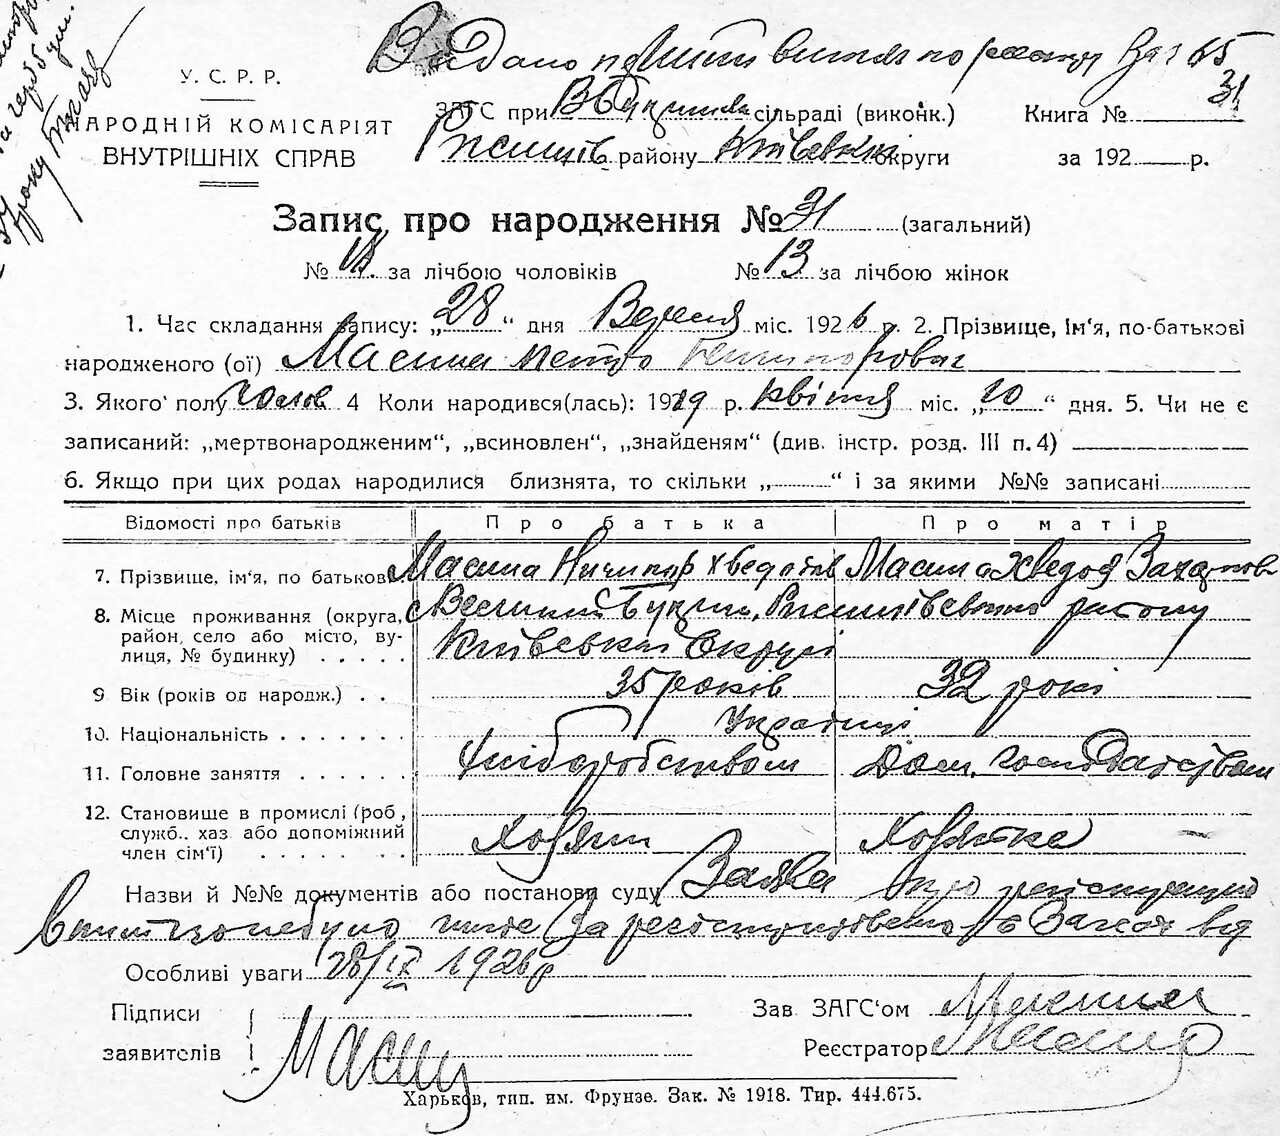 Видано
У. С. Р. Р.
НАРОДНІЙ КОМІСАРІЯТ
ВНУТРІШНІХ СПРАВ
ЗАГС при В Букринska сільраді (виконк.)
району Київськ округи
Книга № 31
за 192 р.
Запис про народження № 31 (загальний)
№ 18 за лічбою чоловіків № 13 за лічбою жінок
1. Час складання запису: „28“ дня Вересня міс. 1926 р. 2. Прізвище, Ім‘я, по-батькові
народженого (ої) Масина Петро
3. Якого полу чолов 4 Коли народився(лась): 1919 р. квітня міс. „20“ дня. 5. Чи не є
записаний: „мертвонародженим“, „всиновлен“, „знайденям“ (див. інстр. розд. III п. 4)
6. Якщо при цих родах народилися близнята, то скільки „ “ і за якими №№ записані
Відомості про батьків Про батька Про матір
7. Прізвище, ім‘я, по батькові Масина Ничипор Хведотов Масина Хведося Захарова
8. Місце проживання (округа, с Великий Букрин, району
район, село або місто, ву-
лиця, № будинку) Київської Округі
9 Вік (років од народж.) 35 років 32 рокі
10. Національність Українці
11. Головне заняття Хліборобством Дом. господарством
12. Становище в промислі (роб,
служб.. хаз або допоміжний
член сім‘ї) Хозяїн Хозяйка
Назви й №№ документів або постанови суду Заява про
Загсі від
Особливі уваги 28/IX 1926 р
Підписи
заявителів Масин
Зав. ЗАГС‘ом
Реєстратор
Харьков, тип. им. Фрунзе. Зак. № 1918. Тир. 444.675.